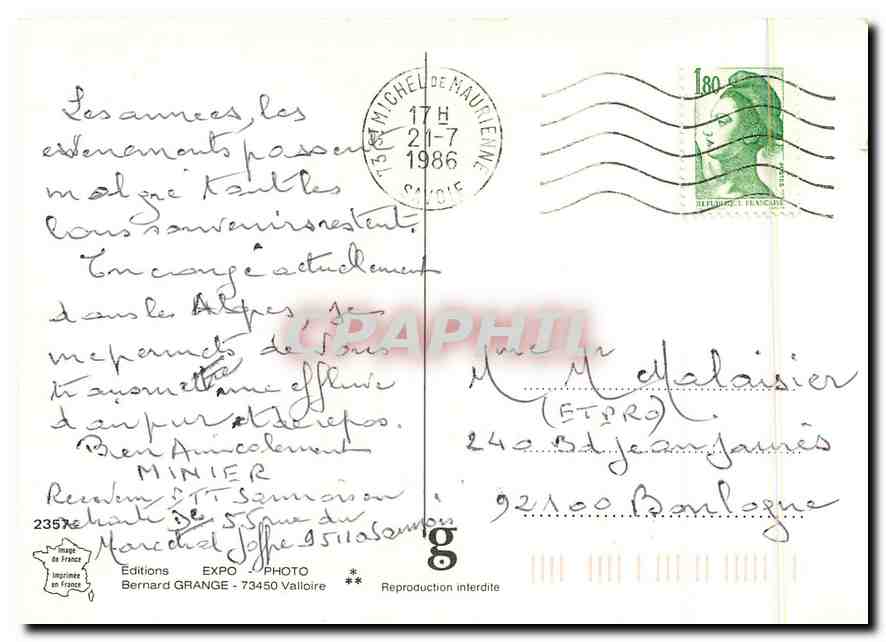 Les années, les
événements passent
malgré tout les
bons souvenirs restent.
En congé actuellement
dans les Alpes, je
me permets de vous
transmettre une effluve
d'air pur et de repos.
Bien Amicalement
MINIER
Receveur PTT Sannoisien
retraité 55 rue du
Maréchal Joffre 95110 Sannois
2357
Image
de France
Imprimée
en France
Editions EXPO - PHOTO
Bernard GRANGE - 73450 Valloire
*
**
g
Reproduction interdite
73 ST MICHEL DE MAURIENNE
17 H
21-7
1986
SAVOIE
1,80
POSTES
REPUBLIQUE FRANÇAISE
CPAPHIL
Mme Mr
M M Malaisier
(ETPRO)
240 Bd Jean Jaurès
92100 Boulogne